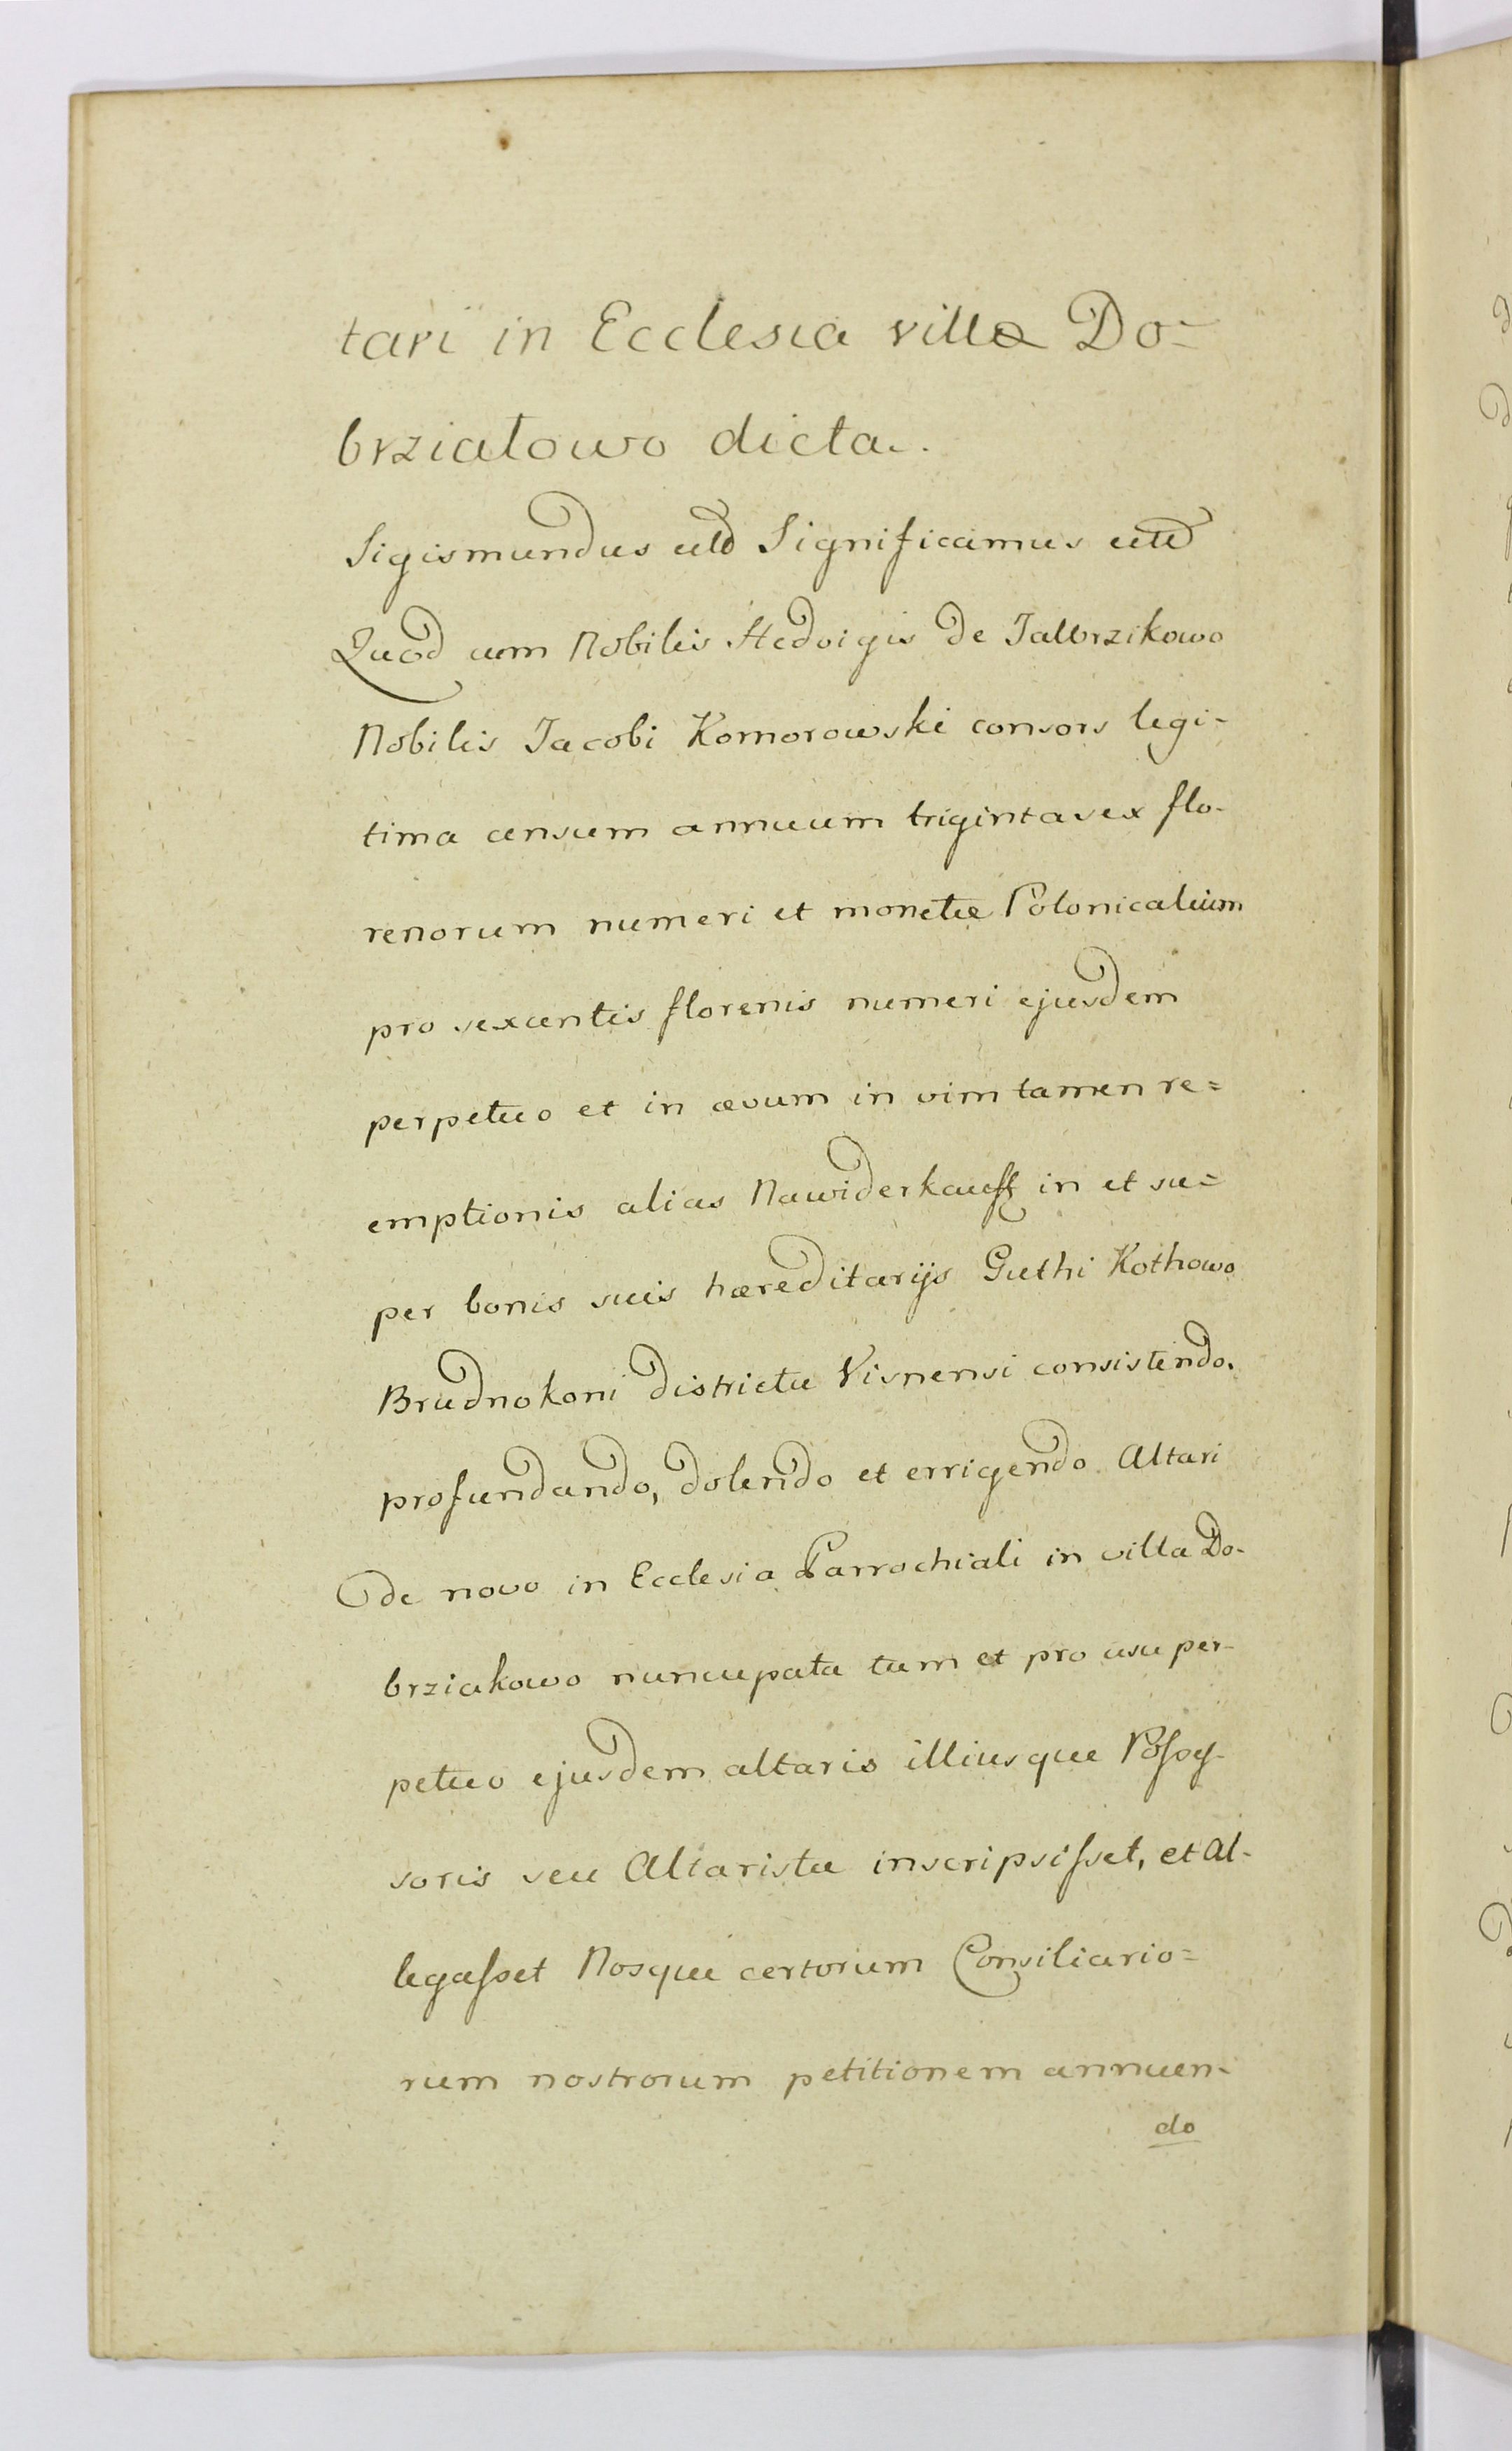 tari in Ecclesia villæ Do-
brziatowo dictæ.
Sigismundus Significamus
Quod cum Nobilis Hedvigis de Jalbrzikowo
Nobilis Jacobi Komorowski consors legi-
tima censum annuum triginta sex flo-
renorum numeri et monetæ Polonicalium
pro sexcentis florenis numeri ejusdem
perpetuo et in ævum in vim tamen re=
emptionis alias Nawiderkauff in et su=
per bonis suis hæreditarijs Guthi Kothowo
Brudnokoni districtu Visnensi consistendo,
profundando, dolendo et errigendo Altari
de novo in Ecclesia Parrochiali in villa Do-
brziakowo nuncupata tum et pro usu per-
petuo ejusdem altaris illiusque Poßeß-
soris seu Altaristæ inscripsisset, et al-
legasset Nosque certorum Consiliario=
rum nostrorum petitionem annuen-
do